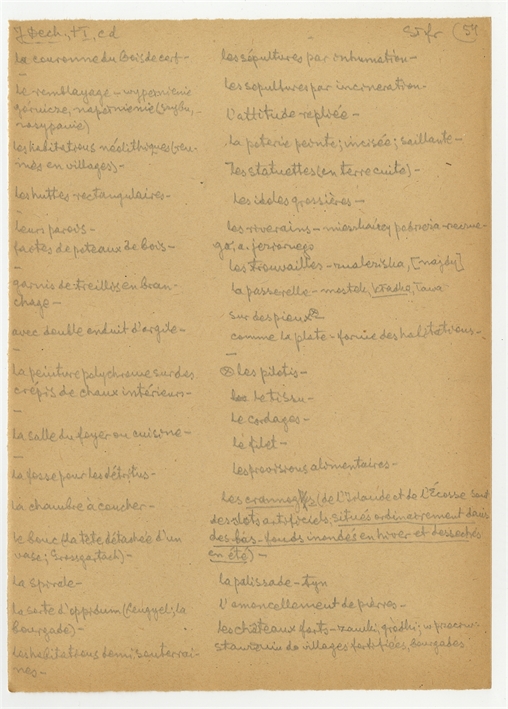 J. Dech., t I, c d
Str fr (54
la couronne du bois de cerf -
le remblayage - wypełnienie
górnicze, napełnienie (
zasypanie)
les habitations néolithiques (réu-
nies en villages) -
les huttes rectangulaires -
leurs parois -
faites de poteaux de bois -
garnis de treillis en bran-
chage -
avec double enduit d'argile -
la peinture polychrome sur des
crépis de chaux intérieurs -
la salle du foyer ou cuisine -
la fosse pour les détritus -
la chambre à coucher -
le bouc (la tête détachée d'un
vase; Grossgartach) -
la spirale -
la sorte d'oppidum (Lengyel; la
bourgade) -
les habitations demi souterrai-
nes -
les sépultures par inhumation -
les sépultures par incinération -
l'attitude repliée -
la poterie peinte; incisée; saillante -
les statuettes (en terre cuite) -
les idoles grossières -
les riverains - mieszkańcy pobrzeża rzeczne-
go, a. jeziornego
les trouvailles - znaleziska, [najdy]
la passerelle - mostek, kładka, ława
sur des pieux
comme la plate-forme des habitations -
⊗ les pilotis -
le tissu -
le cordages -
le filet -
les provisions alimentaires -
les crannogs (de l'Irlande et de l'Écosse sont
des îlots artificiels, situés ordinairement dans
des bas-fonds inondés en hiver et desséchés
en été) -
la palissade - tyn
l'amoncellement de pierres -
les châteaux forts - zamki, gródki; w przeciw-
stawieniu do villages fortifiés, bourgades